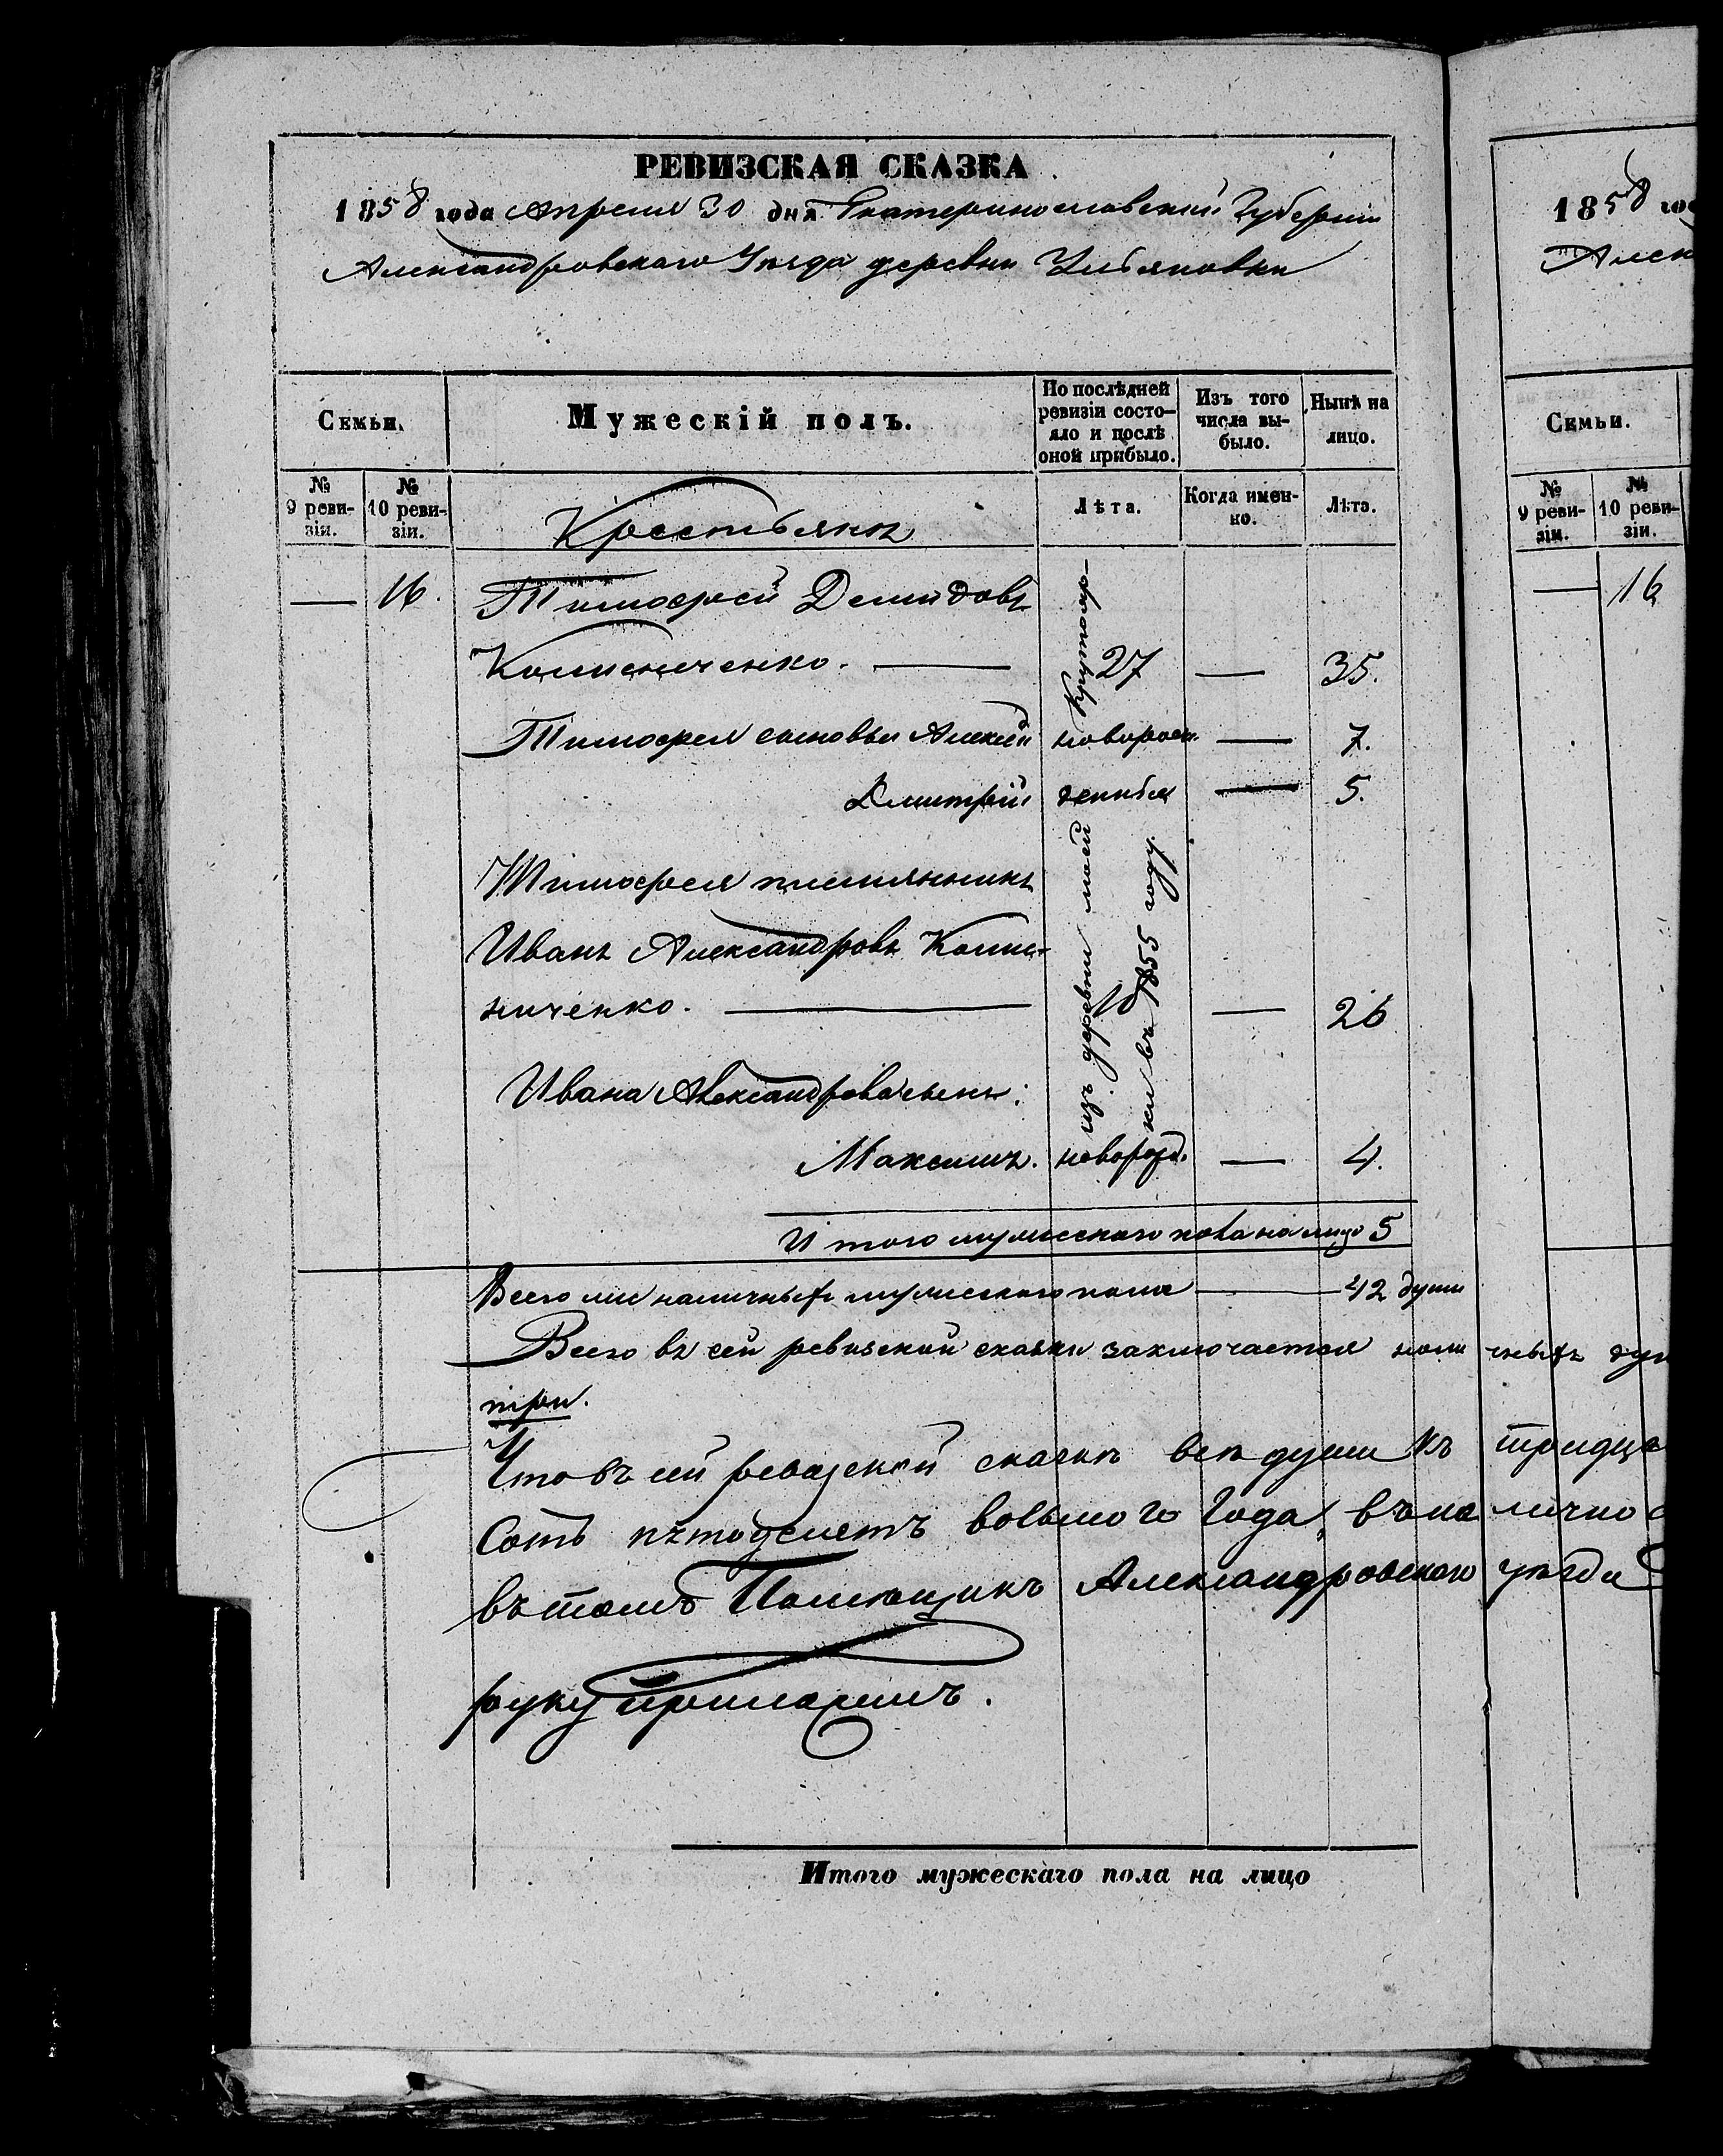 РЕВИЗСКАЯ СКАЗКА
1858 года Апреля 30 дня Екатеринославской Губерніи
Александровскаго Уѣзда деревни Ульяновки
Семьи.
Мужескій полъ.
По послѣдней ревизіи состо-
яло и послѣ оной прибыло.
Изъ того числа вы-
было.
Нынѣ на лицо.
№ 9 реви-
зіи.
№ 10 реви-
зіи.
Крестьянъ
Лѣта.
Когда имен-
но.
Лѣта.
— 16. Тимофей Демидовъ
27 — 35.
Тимофея сыновья Алексей новорожд. — 7.
Дмитрій — 5.
Тимофея племянникъ
Иванъ Александровъ
ниченко. — — 26
Ивана Александрова сынъ:
Максимъ. новорожд. — 4.
изъ деревни моей
ки въ 1855 году
Итого мужескаго пола на лицо 5
Всего наличныхъ мужескаго пола — 42 души
Всего въ сей ревизской сказки заключается наличныхъ
три.
Что въ сей ревизской сказкѣ всѣ души къ
сотъ пятодесятъ восьмого года, въ на лично
въ томъ Помещикъ Александровскаго уѣзда
руку приложилъ.
Итого мужескаго пола на лицо
1858 го
Алек
Семьи.
№ 9 реви-
зіи.
№ 10 реви-
зіи.
— 16